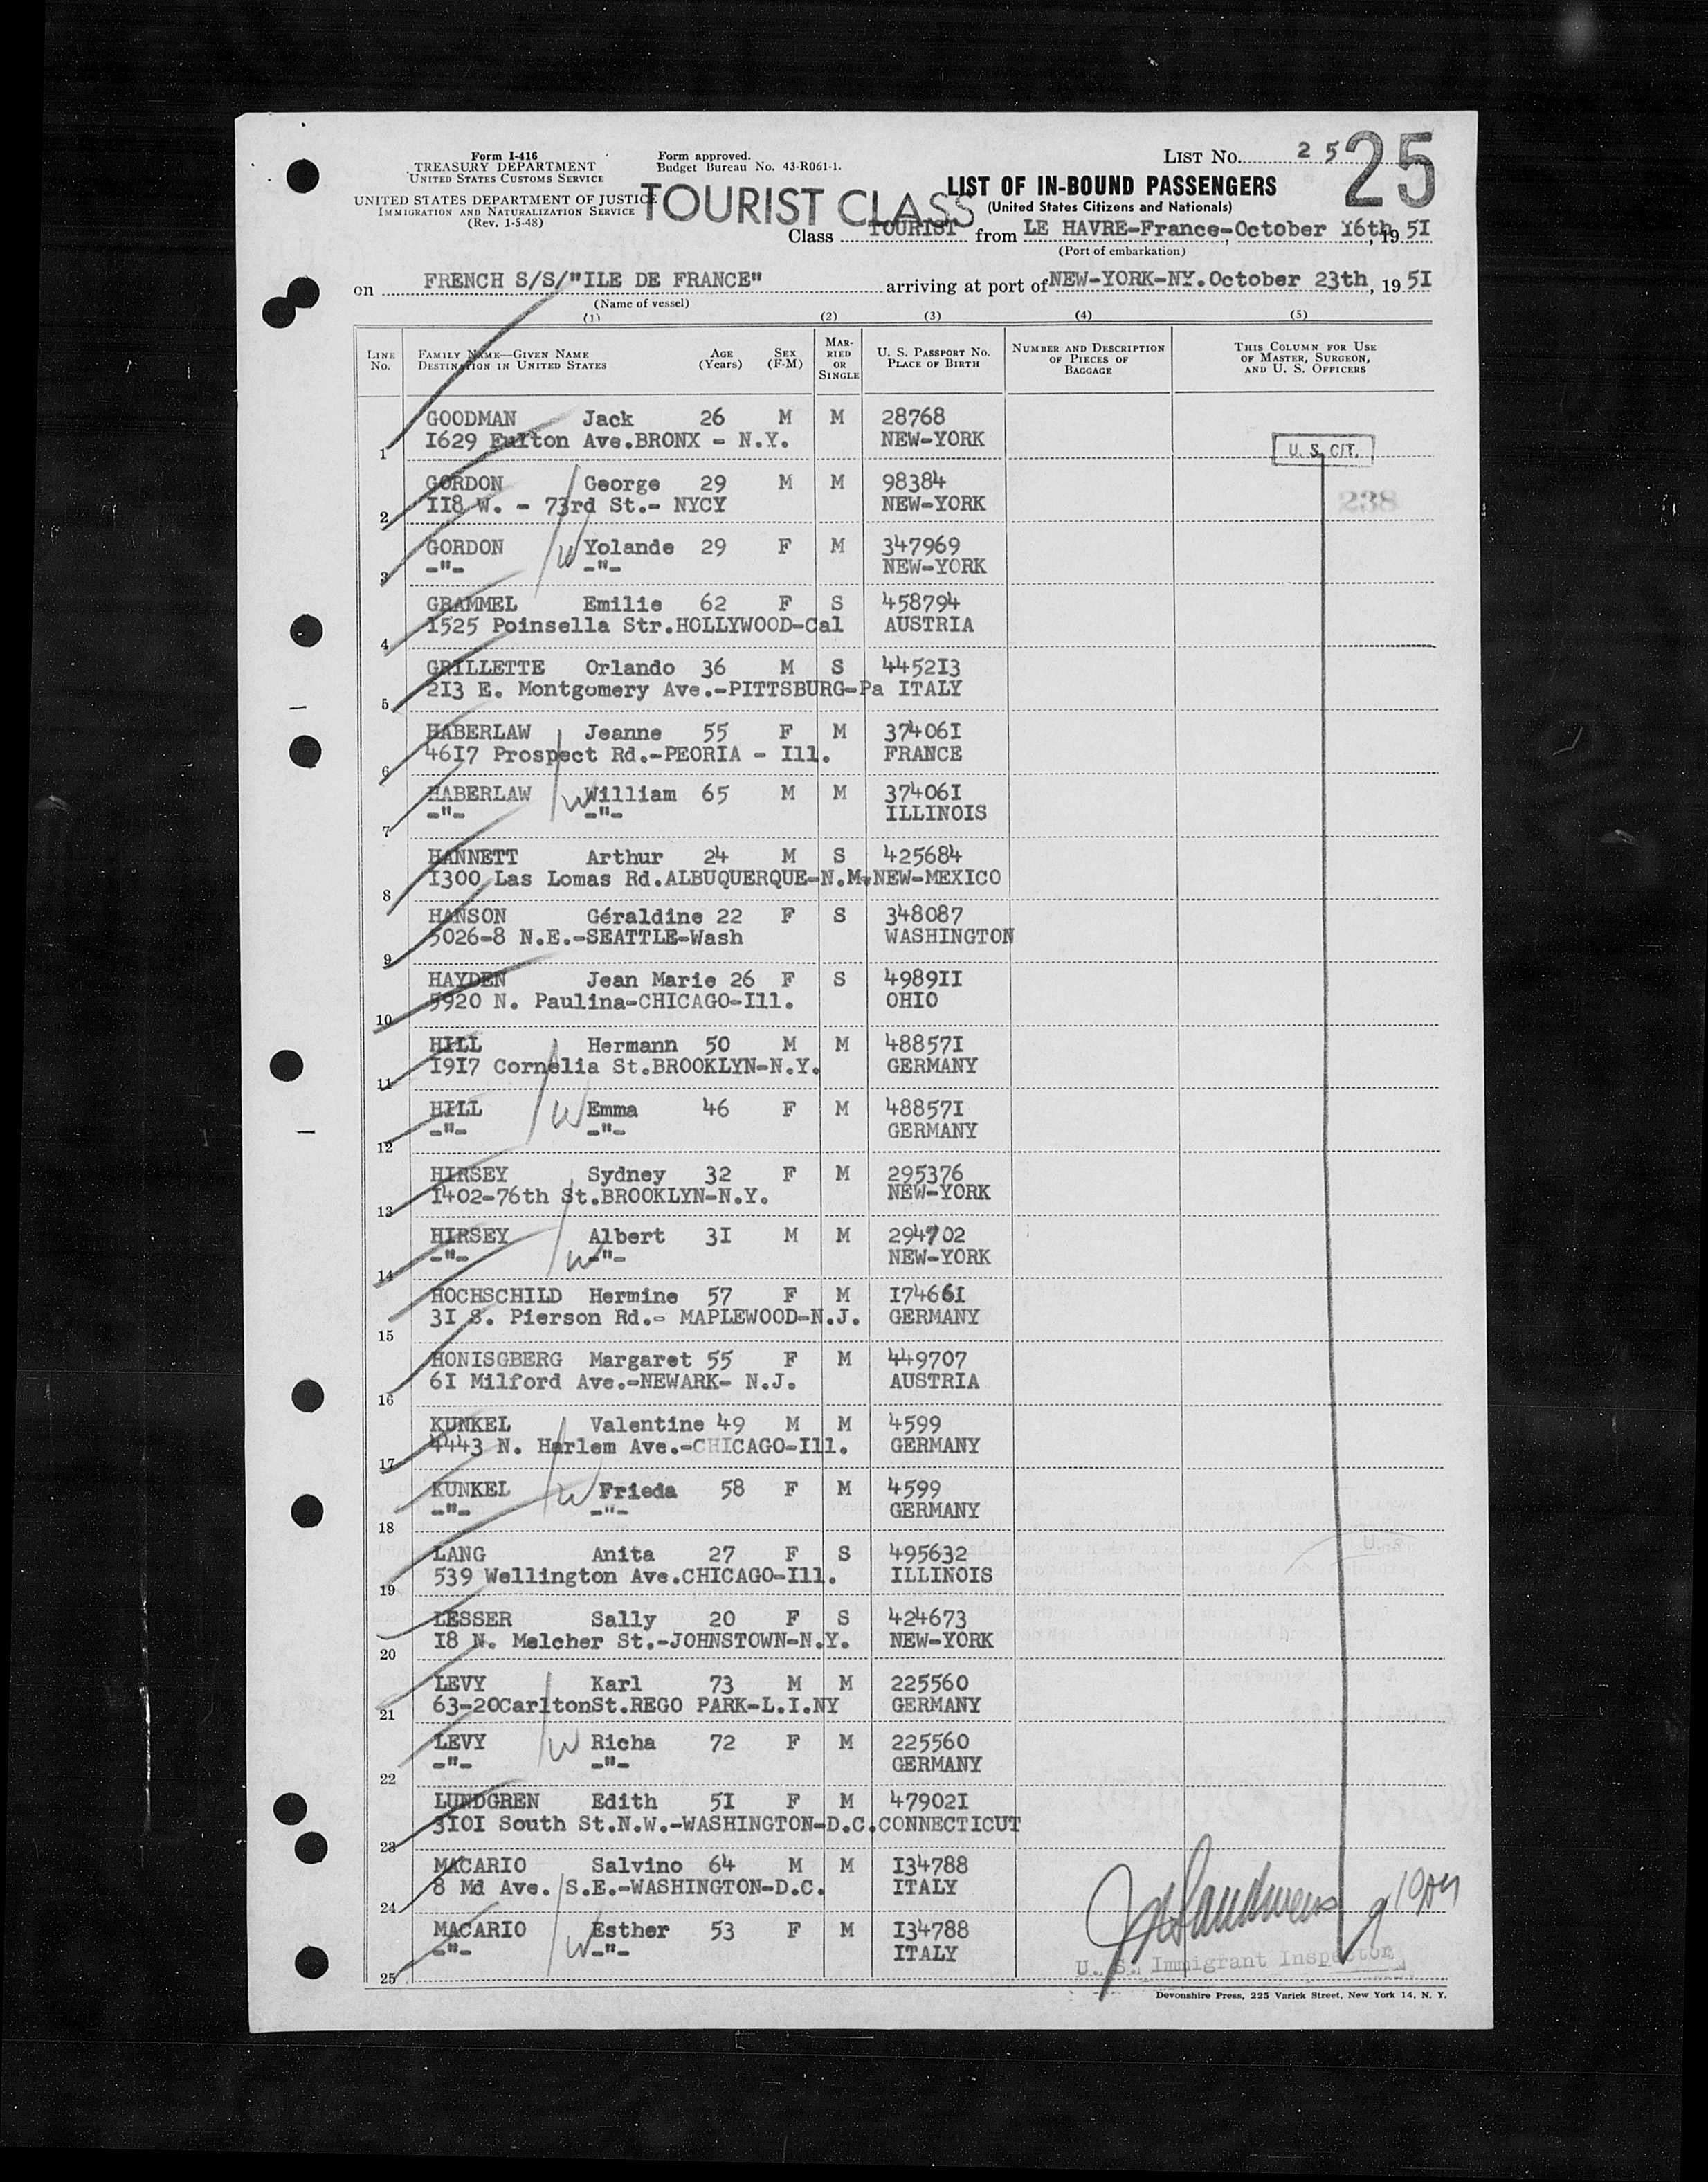 Form I-416
TREASURY DEPARTMENT
UNITED STATES CUSTOMS SERVICE
UNITED STATES DEPARTMENT OF JUSTICE
IMMIGRATION AND NATURALIZATION SERVICE
(Rev. 1-5-48)
Form approved.
Budget Bureau No. 43-R061-1.
LIST No. 25 25
TOURIST CLASS
LIST OF IN-BOUND PASSENGERS
(United States Citizens and Nationals)
Class TOURIST from LE HAVRE-France-, October I6th, 19 5I
(Port of embarkation)
on FRENCH S/S/"ILE DE FRANCE" arriving at port of NEW-YORK-NY. October 23th, 19 5I
(Name of vessel)
(1) (2) (3) (4) (5)
LINE No. FAMILY NAME—GIVEN NAME DESTINATION IN UNITED STATES AGE (Years) SEX (F-M) MARRIED OR SINGLE U. S. PASSPORT No. PLACE OF BIRTH NUMBER AND DESCRIPTION OF PIECES OF BAGGAGE THIS COLUMN FOR USE OF MASTER, SURGEON, AND U. S. OFFICERS
GOODMAN Jack 26 M M 28768
1 I629 Fulton Ave.BRONX - N.Y. NEW-YORK U. S. CIT.
GORDON George 29 M M 98384 238
2 II8 W. - 73rd St.- NYCY NEW-YORK
GORDON W Yolande 29 F M 347969
3 -"- -"- NEW-YORK
GRAMMEL Emilie 62 F S 458794
4 I525 Poinsella Str.HOLLYWOOD-Cal AUSTRIA
GRILLETTE Orlando 36 M S 4452I3
5 2I3 E. Montgomery Ave.-PITTSBURG-Pa ITALY
HABERLAW Jeanne 55 F M 37406I
6 46I7 Prospect Rd.-PEORIA - Ill. FRANCE
HABERLAW W William 65 M M 37406I
7 -"- -"- ILLINOIS
HANNETT Arthur 24 M S 425684
8 I300 Las Lomas Rd.ALBUQUERQUE-N.M.NEW-MEXICO
HANSON Géraldine 22 F S 348087
9 5026-8 N.E.-SEATTLE-Wash WASHINGTON
HAYDEN Jean Marie 26 F S 4989II
10 5920 N. Paulina-CHICAGO-Ill. OHIO
HILL Hermann 50 M M 48857I
11 I9I7 Cornelia St.BROOKLYN-N.Y. GERMANY
HILL W Emma 46 F M 48857I
12 -"- -"- GERMANY
HIRSEY Sydney 32 F M 295376
13 I402-76th St.BROOKLYN-N.Y. NEW-YORK
HIRSEY Albert 3I M M 294702
14 -"- W -"- NEW-YORK
HOCHSCHILD Hermine 57 F M I7466I
15 3I S. Pierson Rd.- MAPLEWOOD-N.J. GERMANY
HONISGBERG Margaret 55 F M 449707
16 6I Milford Ave.-NEWARK- N.J. AUSTRIA
KUNKEL Valentine 49 M M 4599
17 4443 N. Harlem Ave.-CHICAGO-Ill. GERMANY
KUNKEL W Frieda 58 F M 4599
18 -"- -"- GERMANY
LANG Anita 27 F S 495632
19 539 Wellington Ave.CHICAGO-Ill. ILLINOIS
LESSER Sally 20 F S 424673
20 I8 N. Melcher St.-JOHNSTOWN-N.Y. NEW-YORK
LEVY Karl 73 M M 225560
21 63-20CarltonSt.REGO PARK-L.I.NY GERMANY
LEVY W Richa 72 F M 225560
22 -"- -"- GERMANY
LUNDGREN Edith 5I F M 47902I
23 3I0I South St.N.W.-WASHINGTON-D.C.CONNECTICUT
MACARIO Salvino 64 M M I34788
24 8 Md Ave. S.E.-WASHINGTON-D.C. ITALY
MACARIO Esther 53 F M I34788
25 -"- W -"- ITALY
U. S. Immigrant Inspector
Devonshire Press, 225 Varick Street, New York 14, N. Y.